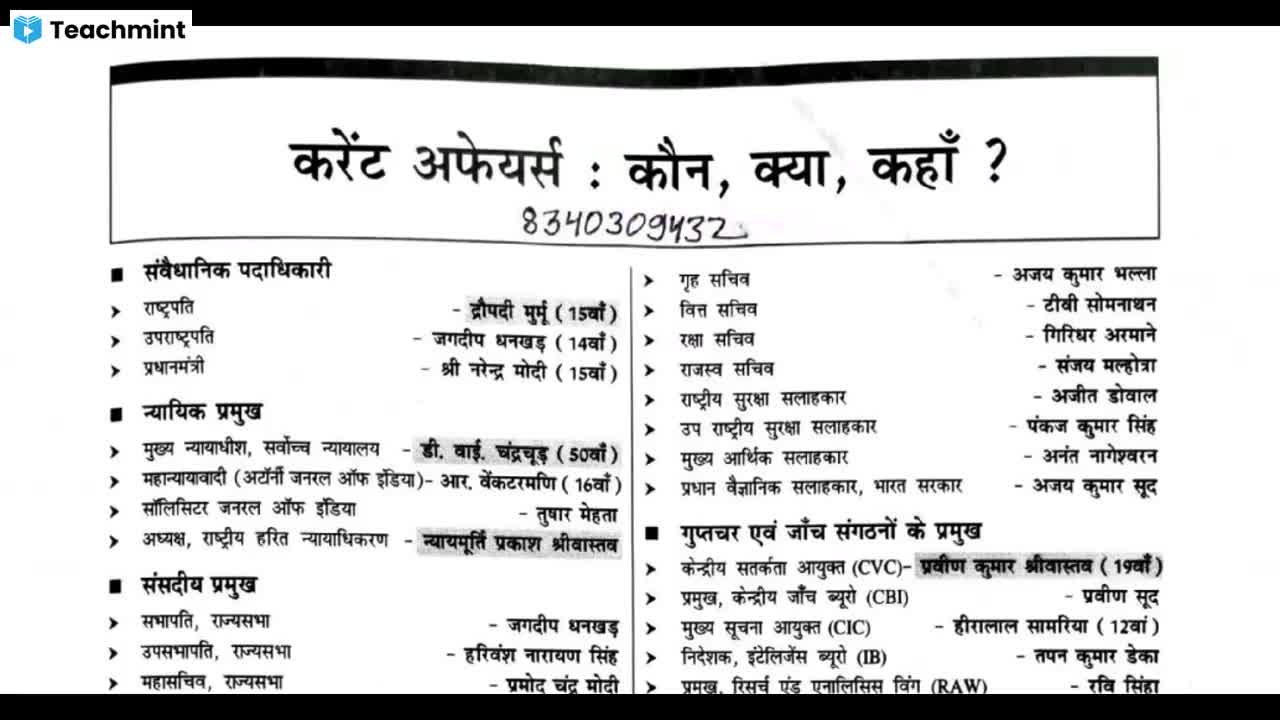 Teachmint
करेंट अफेयर्स : कौन, क्या, कहाँ ?
8340309432
■ संवैधानिक पदाधिकारी
➤ राष्ट्रपति - द्रौपदी मुर्मू (15वाँ)
➤ उपराष्ट्रपति - जगदीप धनखड़ (14वाँ)
➤ प्रधानमंत्री - श्री नरेन्द्र मोदी (15वाँ)
■ न्यायिक प्रमुख
➤ मुख्य न्यायाधीश, सर्वोच्च न्यायालय - डी. वाई. चंद्रचूड़ (50वाँ)
➤ महान्यायावादी (अटॉर्नी जनरल ऑफ इंडिया)- आर. वेंकटरमणि (16वाँ)
➤ सॉलिसिटर जनरल ऑफ इंडिया - तुषार मेहता
➤ अध्यक्ष, राष्ट्रीय हरित न्यायाधिकरण - न्यायमूर्ति प्रकाश श्रीवास्तव
■ संसदीय प्रमुख
➤ सभापति, राज्यसभा - जगदीप धनखड़
➤ उपसभापति, राज्यसभा - हरिवंश नारायण सिंह
➤ महासचिव, राज्यसभा - प्रमोद चंद्र मोदी
➤ गृह सचिव - अजय कुमार भल्ला
➤ वित्त सचिव - टीवी सोमनाथन
➤ रक्षा सचिव - गिरिधर अरमाने
➤ राजस्व सचिव - संजय मल्होत्रा
➤ राष्ट्रीय सुरक्षा सलाहकार - अजीत डोवाल
➤ उप राष्ट्रीय सुरक्षा सलाहकार - पंकज कुमार सिंह
➤ मुख्य आर्थिक सलाहकार - अनंत नागेश्वरन
➤ प्रधान वैज्ञानिक सलाहकार, भारत सरकार - अजय कुमार सूद
■ गुप्तचर एवं जाँच संगठनों के प्रमुख
➤ केन्द्रीय सतर्कता आयुक्त (CVC)- प्रवीण कुमार श्रीवास्तव (19वाँ)
➤ प्रमुख, केन्द्रीय जाँच ब्यूरो (CBI) - प्रवीण सूद
➤ मुख्य सूचना आयुक्त (CIC) - हीरालाल सामरिया (12वां)
➤ निदेशक, इंटेलिजेंस ब्यूरो (IB) - तपन कुमार डेका
➤ प्रमुख, रिसर्च एंड एनालिसिस विंग (RAW) - रवि सिंहा